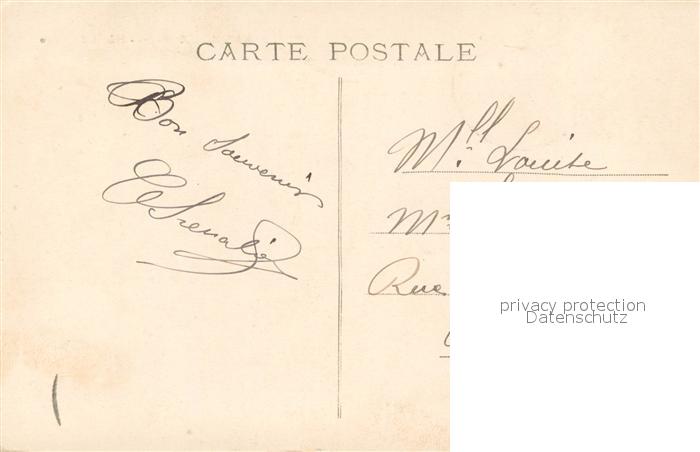 CARTE POSTALE
Bon
Souvenir
Mlle Louise
Mr
Rue
privacy protection
Datenschutz